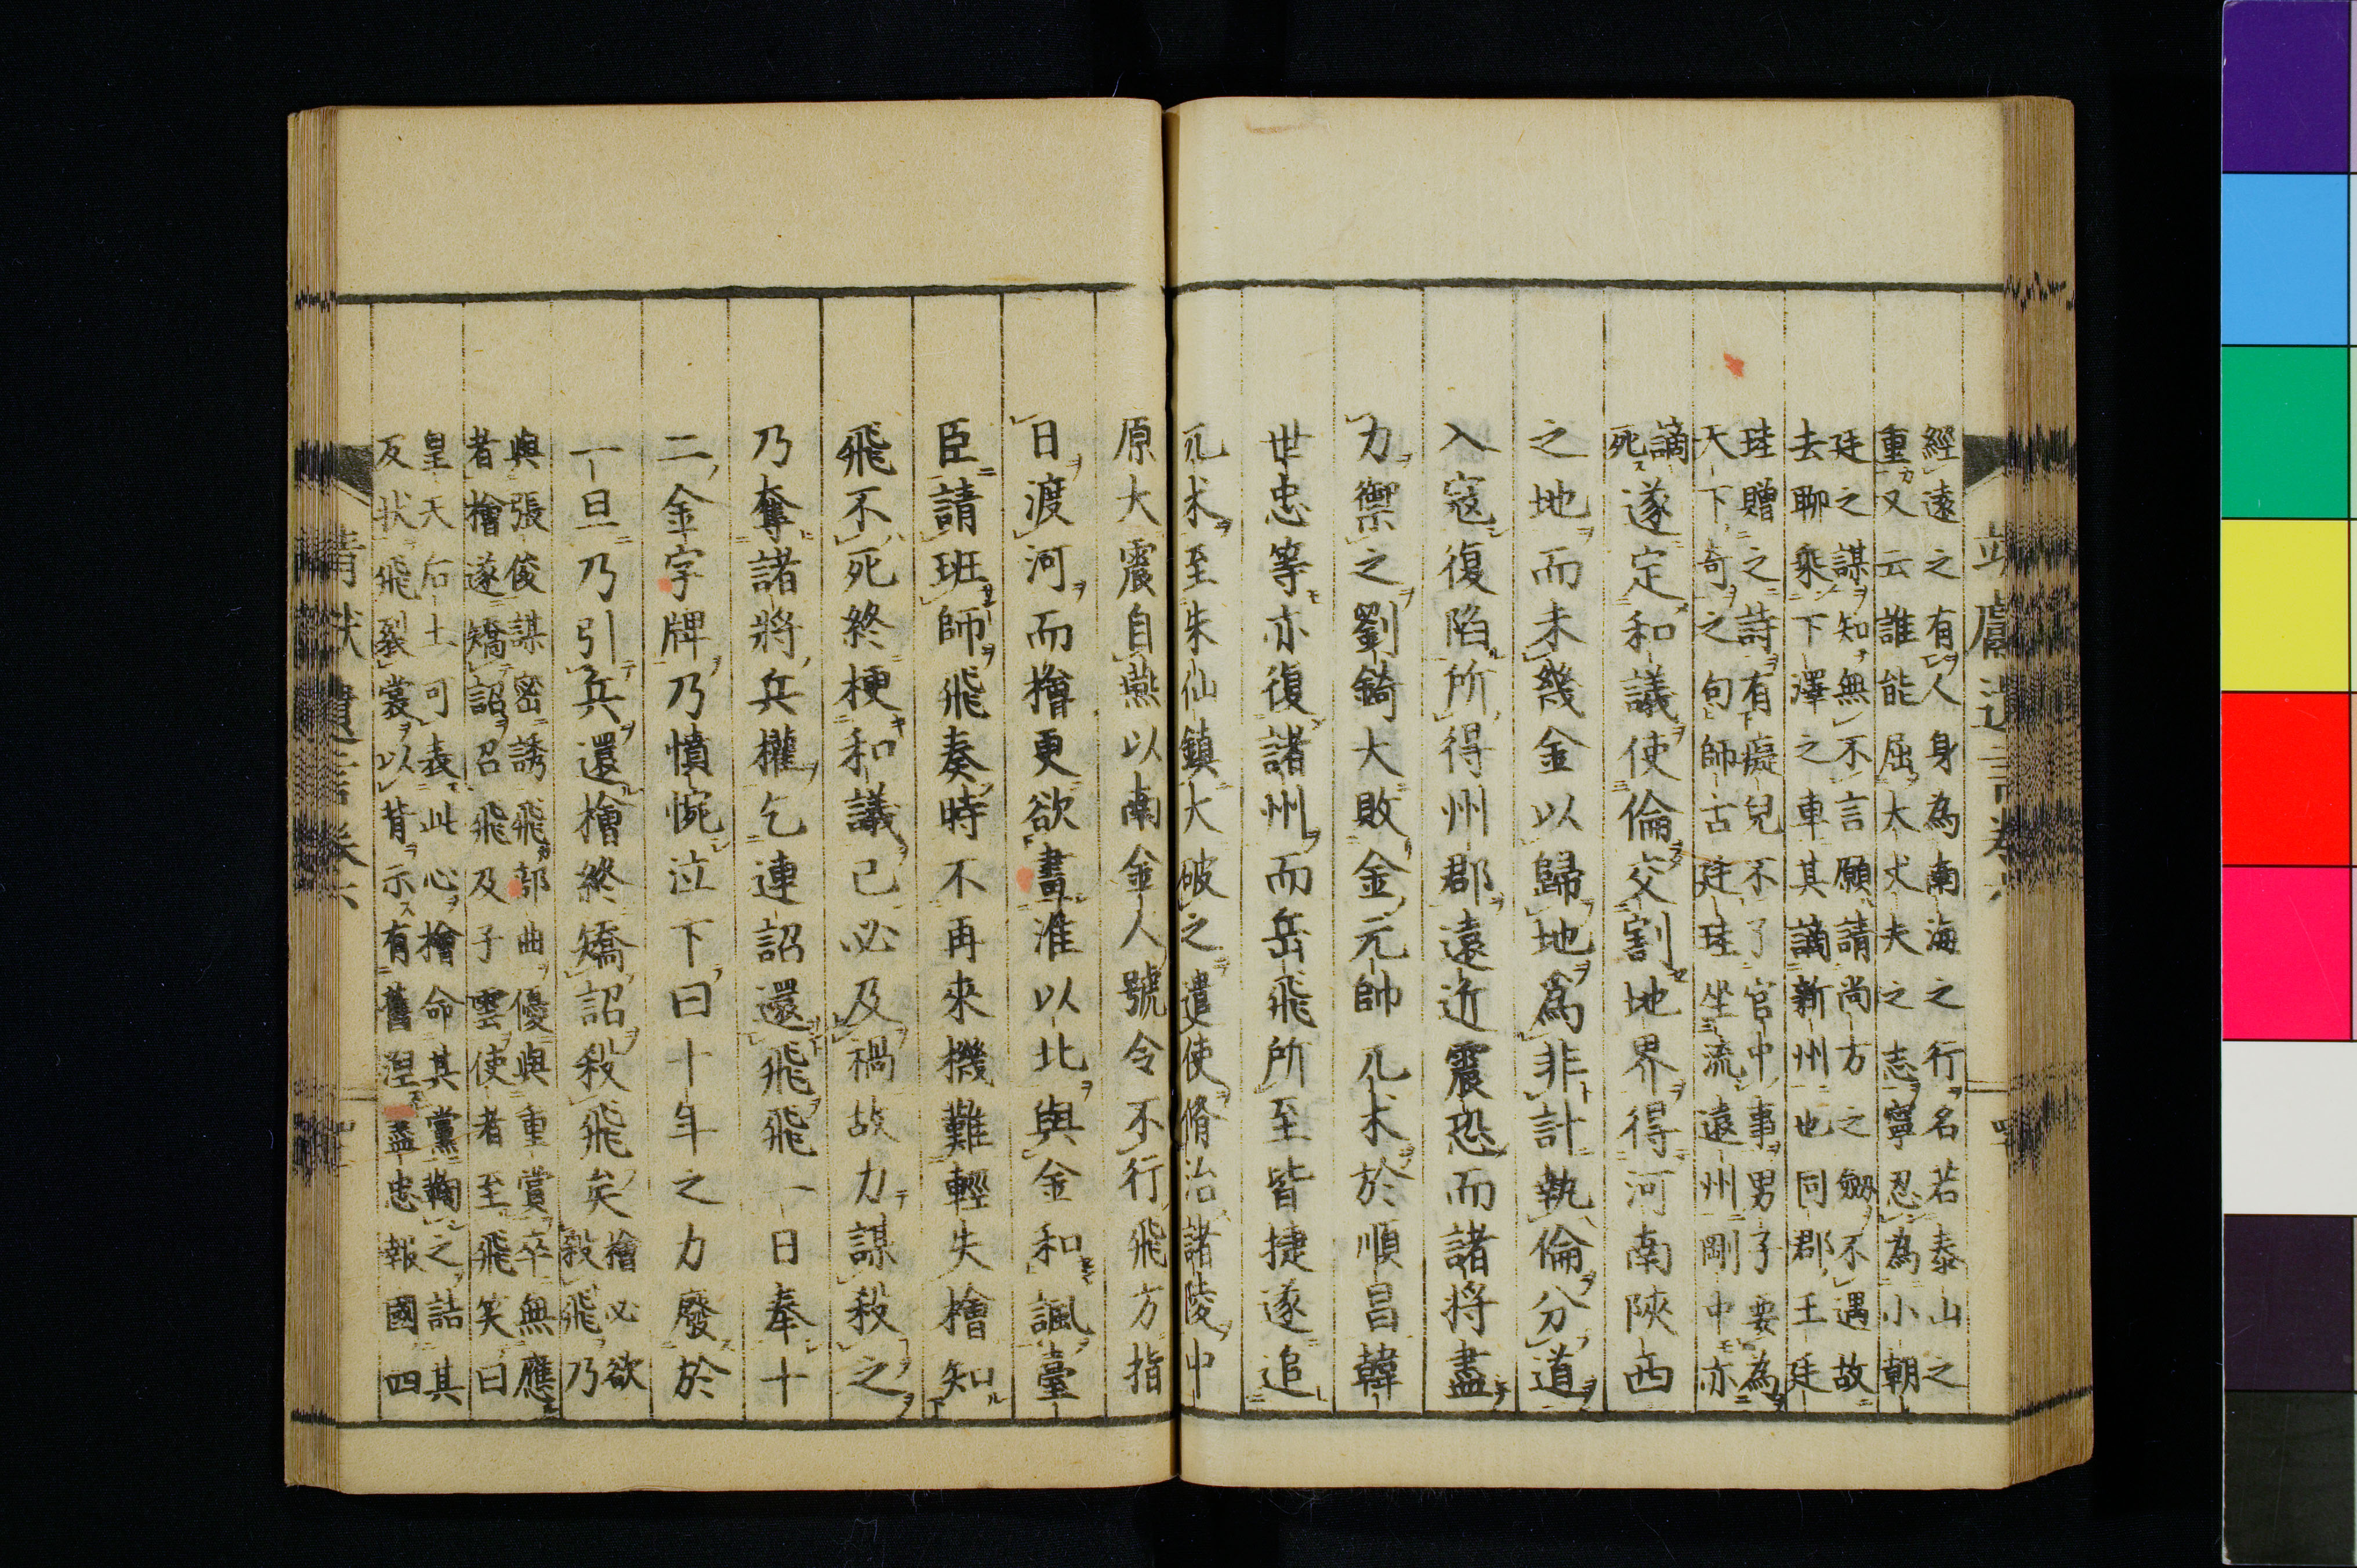 經遠之有人身為南海之行名若泰山之
重又云誰能屈大丈夫之志寧忍為小朝
廷之謀知無不言願請尚方之劔不遇故
去聊乘下澤之車其謫新州也同郡王廷
珪贈之詩有癡兒不了官中事男子要為
天下奇之句師古廷珪坐流遠州剛中亦
謫
死
遂定和議使倫交割地界得河南陝西
之地而未幾金以歸地為非計執倫分道
入寇復陷所得州郡遠近震恐而諸將盡
力禦之劉錡大敗金元帥兀朮於順昌韓
世忠等亦復諸州而岳飛所至皆捷遂追
兀朮至朱仙鎮大破之遣使脩治諸陵中
原大震自燕以南金人號令不行飛方指
日渡河而檜更欲畫淮以北與金和諷臺
臣請班師飛奏時不再來機難輕失檜知
飛不死終梗和議己必及禍故力謀殺之
乃奪諸將兵權乞連詔還飛飛一日奉十
二金字牌乃憤惋泣下曰十年之力廢於
一旦乃引兵還檜終矯詔殺飛矣
檜必欲
殺飛乃
與張俊謀密誘飛部曲優與重賞卒無應
者檜遂矯詔召飛及子雲使者至飛笑曰
皇天后土可表此心檜命其黨鞫之詰其
反状飛裂裳以背示有舊涅盡忠報國四